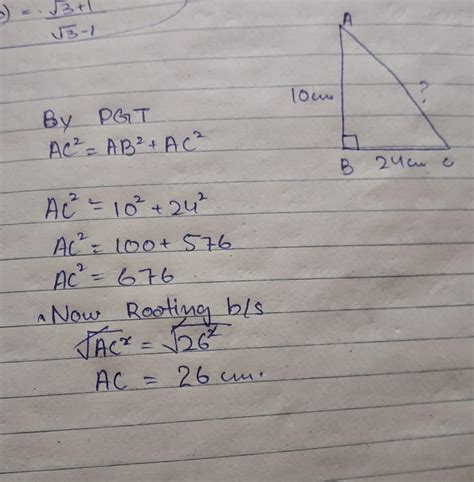 ) = √3+1
√3-1
A
10cm
?
B 24cm C
By PGT
AC² = AB² + AC²
AC² = 10² + 24²
AC² = 100 + 576
AC² = 676
Now Rooting b/s
√AC² = √26²
AC = 26 cm.